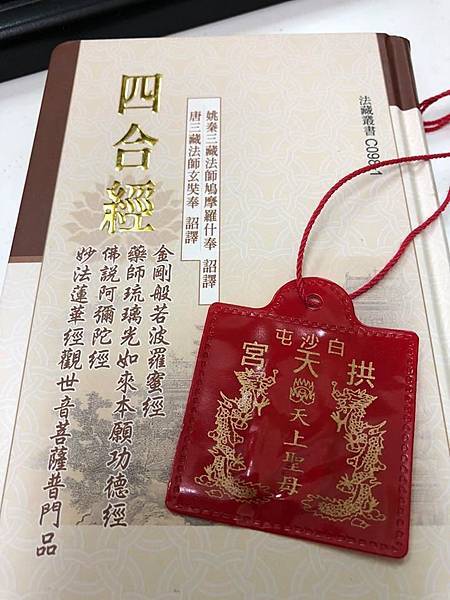 法藏叢書 C0981
姚秦三藏法師鳩摩羅什奉 詔譯
唐三藏法師玄奘奉 詔譯
四合經
金剛般若波羅蜜經
藥師琉璃光如來本願功德經
佛說阿彌陀經
妙法蓮華經觀世音菩薩普門品
白沙屯
拱天宮
天上聖母